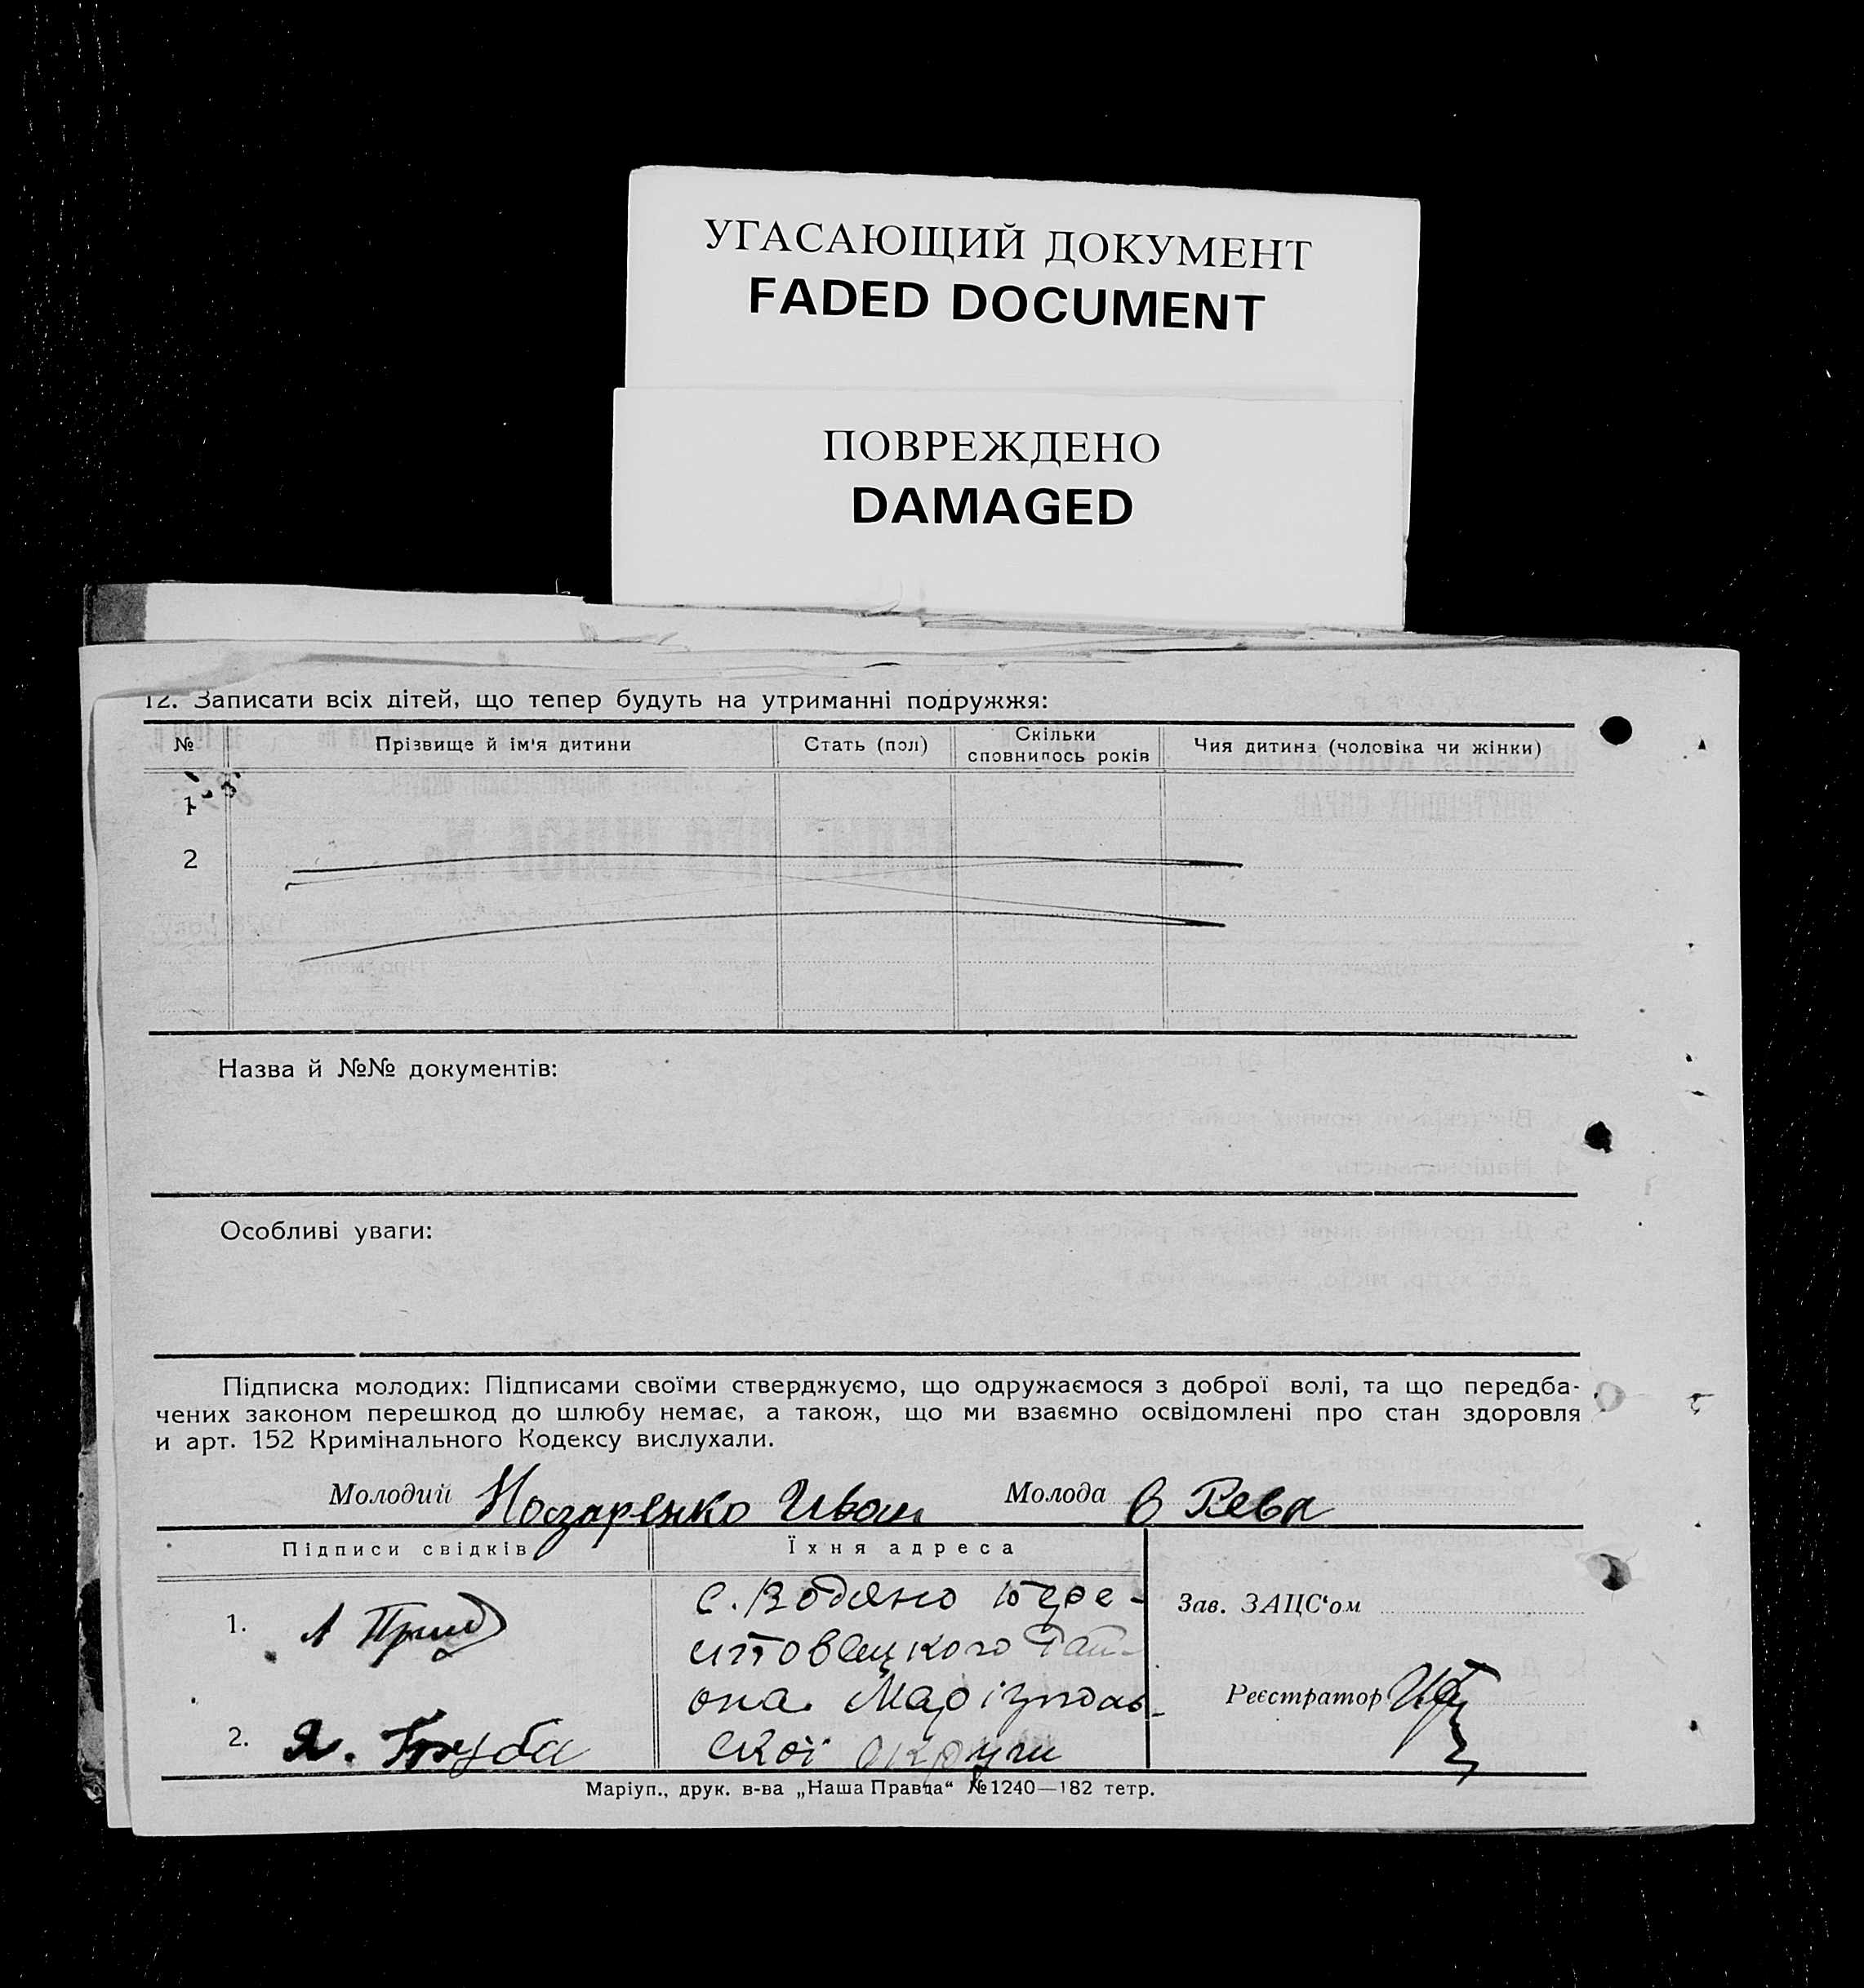 УГАСАЮЩИЙ ДОКУМЕНТ
FADED DOCUMENT
ПОВРЕЖДЕНО
DAMAGED
12. Записати всіх дітей, що тепер будуть на утриманні подружжя:
№ Прізвище й ім'я дитини Стать (пол) Скільки сповнилось років Чия дитина (чоловіка чи жінки)
1
2
Назва й №№ документів:
Особливі уваги:
Підписка молодих: Підписами своїми стверджуємо, що одружаємося з доброї волі, та що передба-
чених законом перешкод до шлюбу немає, а також, що ми взаємно освідомлені про стан здоровля
и арт. 152 Кримінального Кодексу вислухали.
Молодий Назаренко Иван Молода В Рева
Підписи свідків Їхня адреса
1.
с. Водяно
Зав. ЗАЦС'ом
она Маріупольської
Реєстратор
2. Я.
ської округи
Маріуп., друк. в-ва „Наша Правда“ № 1240—182 тетр.